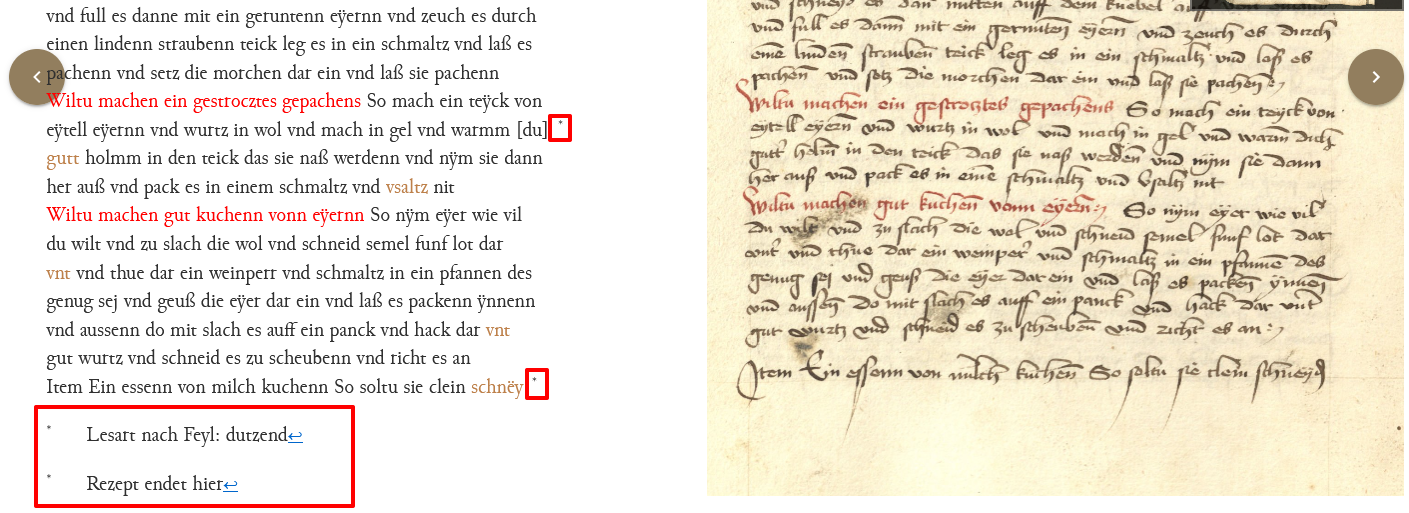 vnd full es danne mit ein geruntenn eÿernn vnd zeuch es durch
einen lindenn straubenn teick leg es in ein schmaltz vnd laß es
pachenn vnd setz die morchen dar ein vnd laß sie pachenn
Wiltu machen ein gestrocztes gepachens So mach ein teÿck von
eÿtell eÿernn vnd wurtz in wol vnd mach in gel vnd warmm [du]*
gutt holmm in den teick das sie naß werdenn vnd nÿm sie dann
her auß vnd pack es in einem schmaltz vnd vsaltz nit
Wiltu machen gut kuchenn vonn eÿernn So nÿm eÿer wie vil
du wilt vnd zu slach die wol vnd schneid semel funf lot dar
vnt vnd thue dar ein weinperr vnd schmaltz in ein pfannen des
genug sej vnd geuß die eÿer dar ein vnd laß es packenn ÿnnenn
vnd aussenn do mit slach es auff ein panck vnd hack dar vnt
gut wurtz vnd schneid es zu scheubenn vnd richt es an
Item Ein essenn von milch kuchenn So soltu sie clein schnëy *
* Lesart nach Feyl: dutzend↩
* Rezept endet hier↩
vnd full es dann mit ein gerunten eÿern vnd zeuch es durch
eine linden strauben teick leg es in ein schmaltz vnd laß es
pachen vnd setz die morchen dar ein vnd laß sie pachen
Wiltu machen ein gestrocztes gepachens So mach ein teÿck von
eytell eÿern vnd wurtz in wol vnd mach in gel vnd warm
gutt holm in den teick das sie naß werden vnd nÿm sie dann
her auß vnd pack es in eine schmaltz vnd vsaltz nit
Wiltu machen gut kuchen vonn eÿern So nÿm eÿer wie vil
du wilt vnd zu slach die wol vnd schneid semel funf lot dar
vnt vnd thue dar ein weinper vnd schmaltz in ein pfannen des
genug sej vnd geuß die eÿer dar ein vnd laß es packen ÿnnen
vnd aussen do mit slach es auff ein panck vnd hack dar vnt
gut wurtz vnd schneid es zu scheuben vnd richt es an
Item Ein essenn von milch kuchen So soltu sie clein schneyd